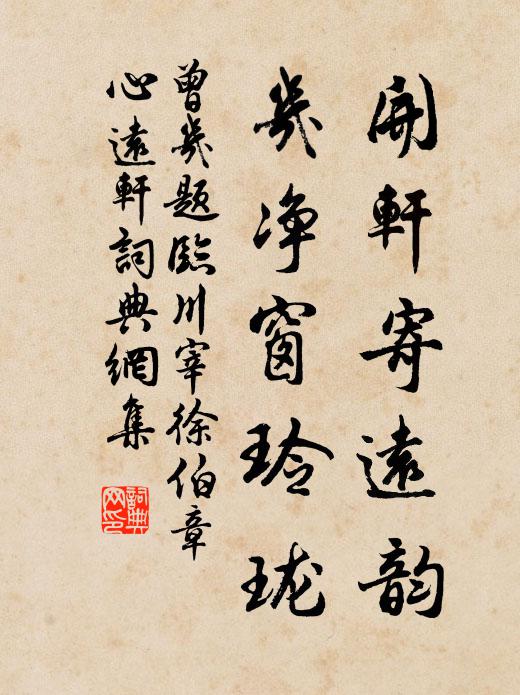 開軒寄遠韵
幾净窗玲瓏
曾幾題臨川宰徐伯章
心遠軒詞典網集
詞典网印